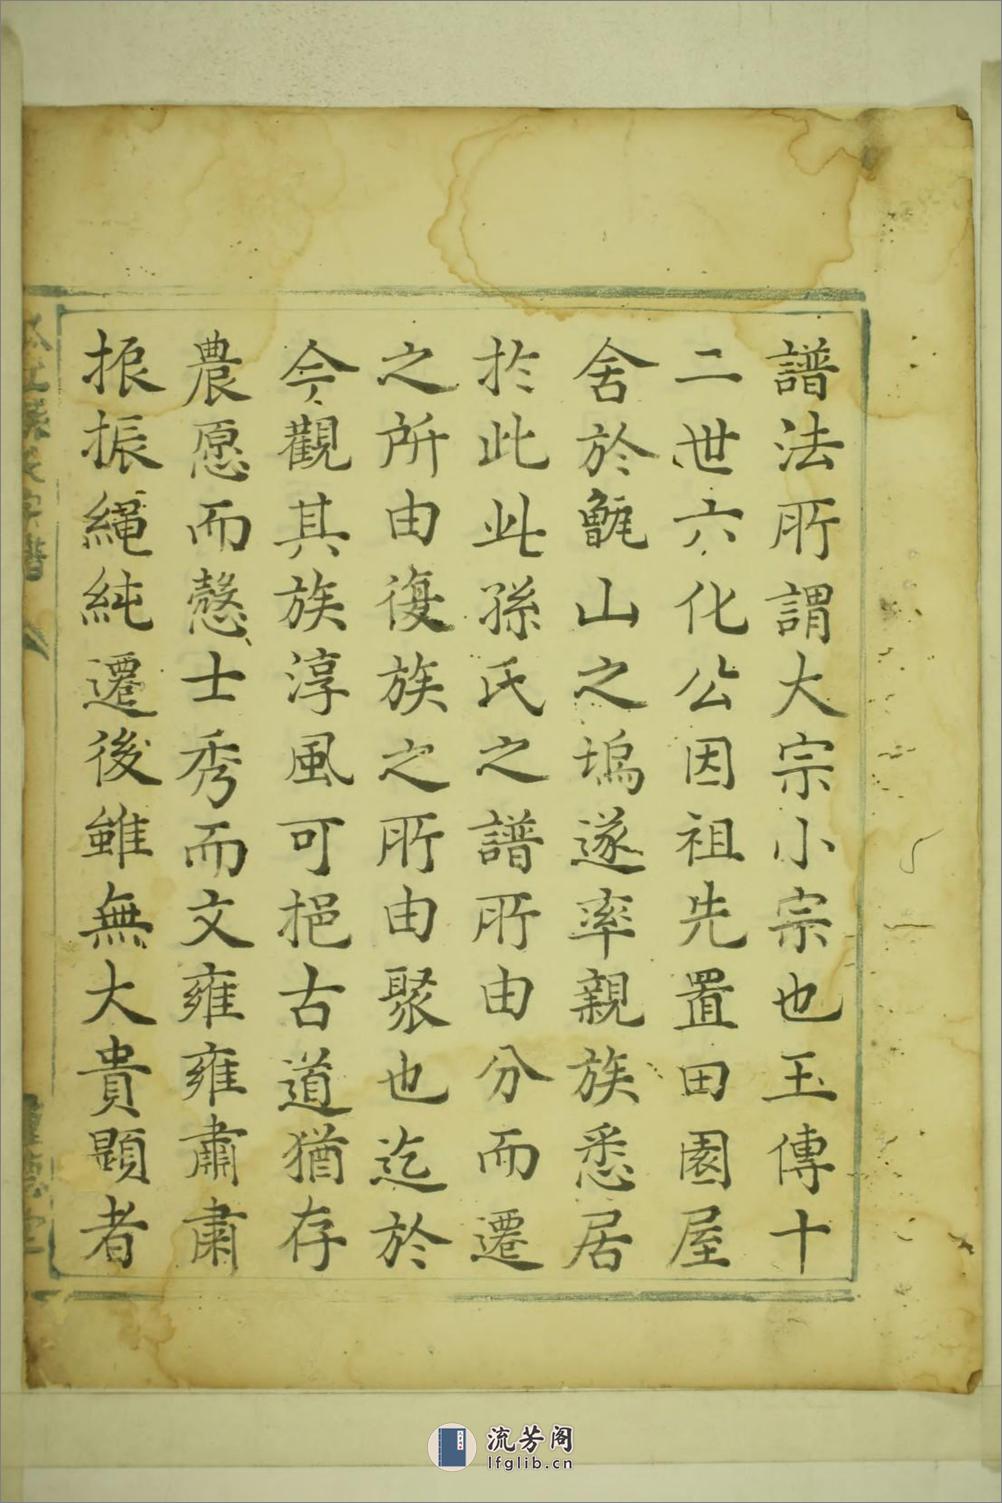 譜法所謂大宗小宗也玉傳十
二世六化公因祖先置田園屋
舍於甑山之塢遂率親族悉居
於此此孫氏之譜所由分而遷
之所由復族之所由聚也迄於
今觀其族淳風可挹古道猶存
農愿而慤士秀而文雍雍肅肅
振振繩純遷後雖無大貴顯者
流芳阁
lfglib.cn